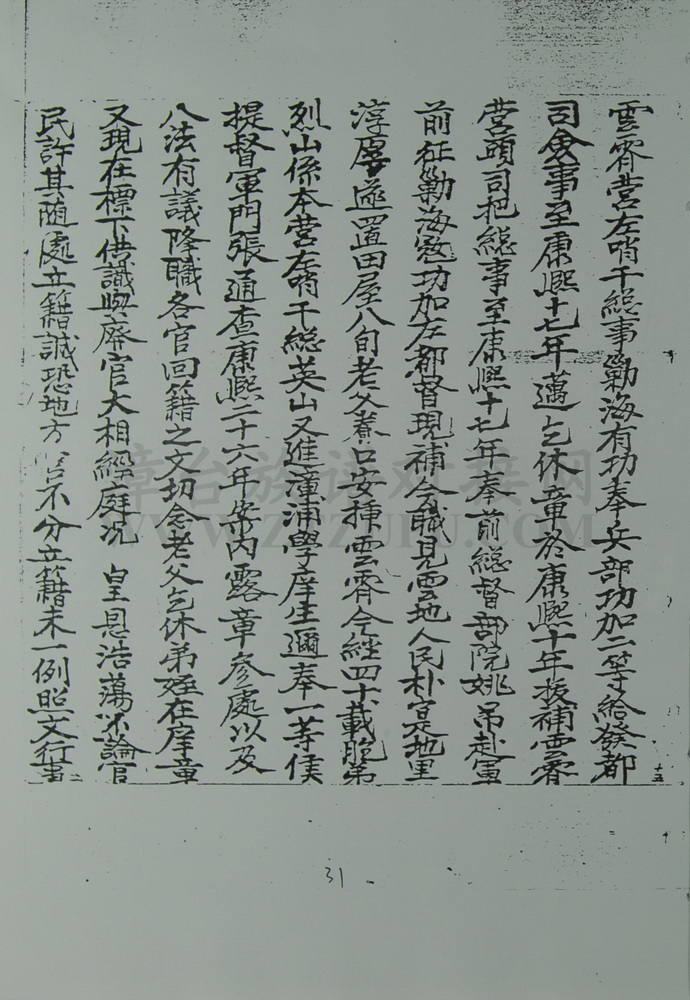 雲霄营左哨千総事勦海有功奉兵部功加二等給發都
司僉事至康熙十七年邁乞休章於康熙十年拨補雲霄
营頭司把総事至康熙十七年奉前総督部院姚吊赴軍
前征勦海寇功加左都督現補今職見雲地人民朴寔地里
淳厚遂置田屋八旬老父眷口安揷雲霄今経四十載胞弟
烈山係本营左哨千総英山又進漳浦學庠生邇奉一等侯
提督軍門張通查康熙二十六年案内露章参處以及
八法有議降職各官回籍之文切念老父乞休弟姪在庠章
又現在標下供職與廢官大相經庭况 皇恩浩蕩不論官
民許其随處立籍誠恐地方官不分立籍未一例照文行事
十五
31
章台族谱对接网
WWW.ZTZUPU.COM